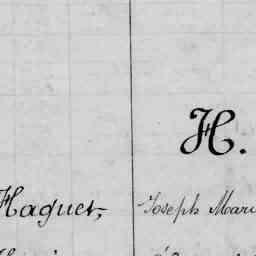 H.
Haguet, Joseph Mari